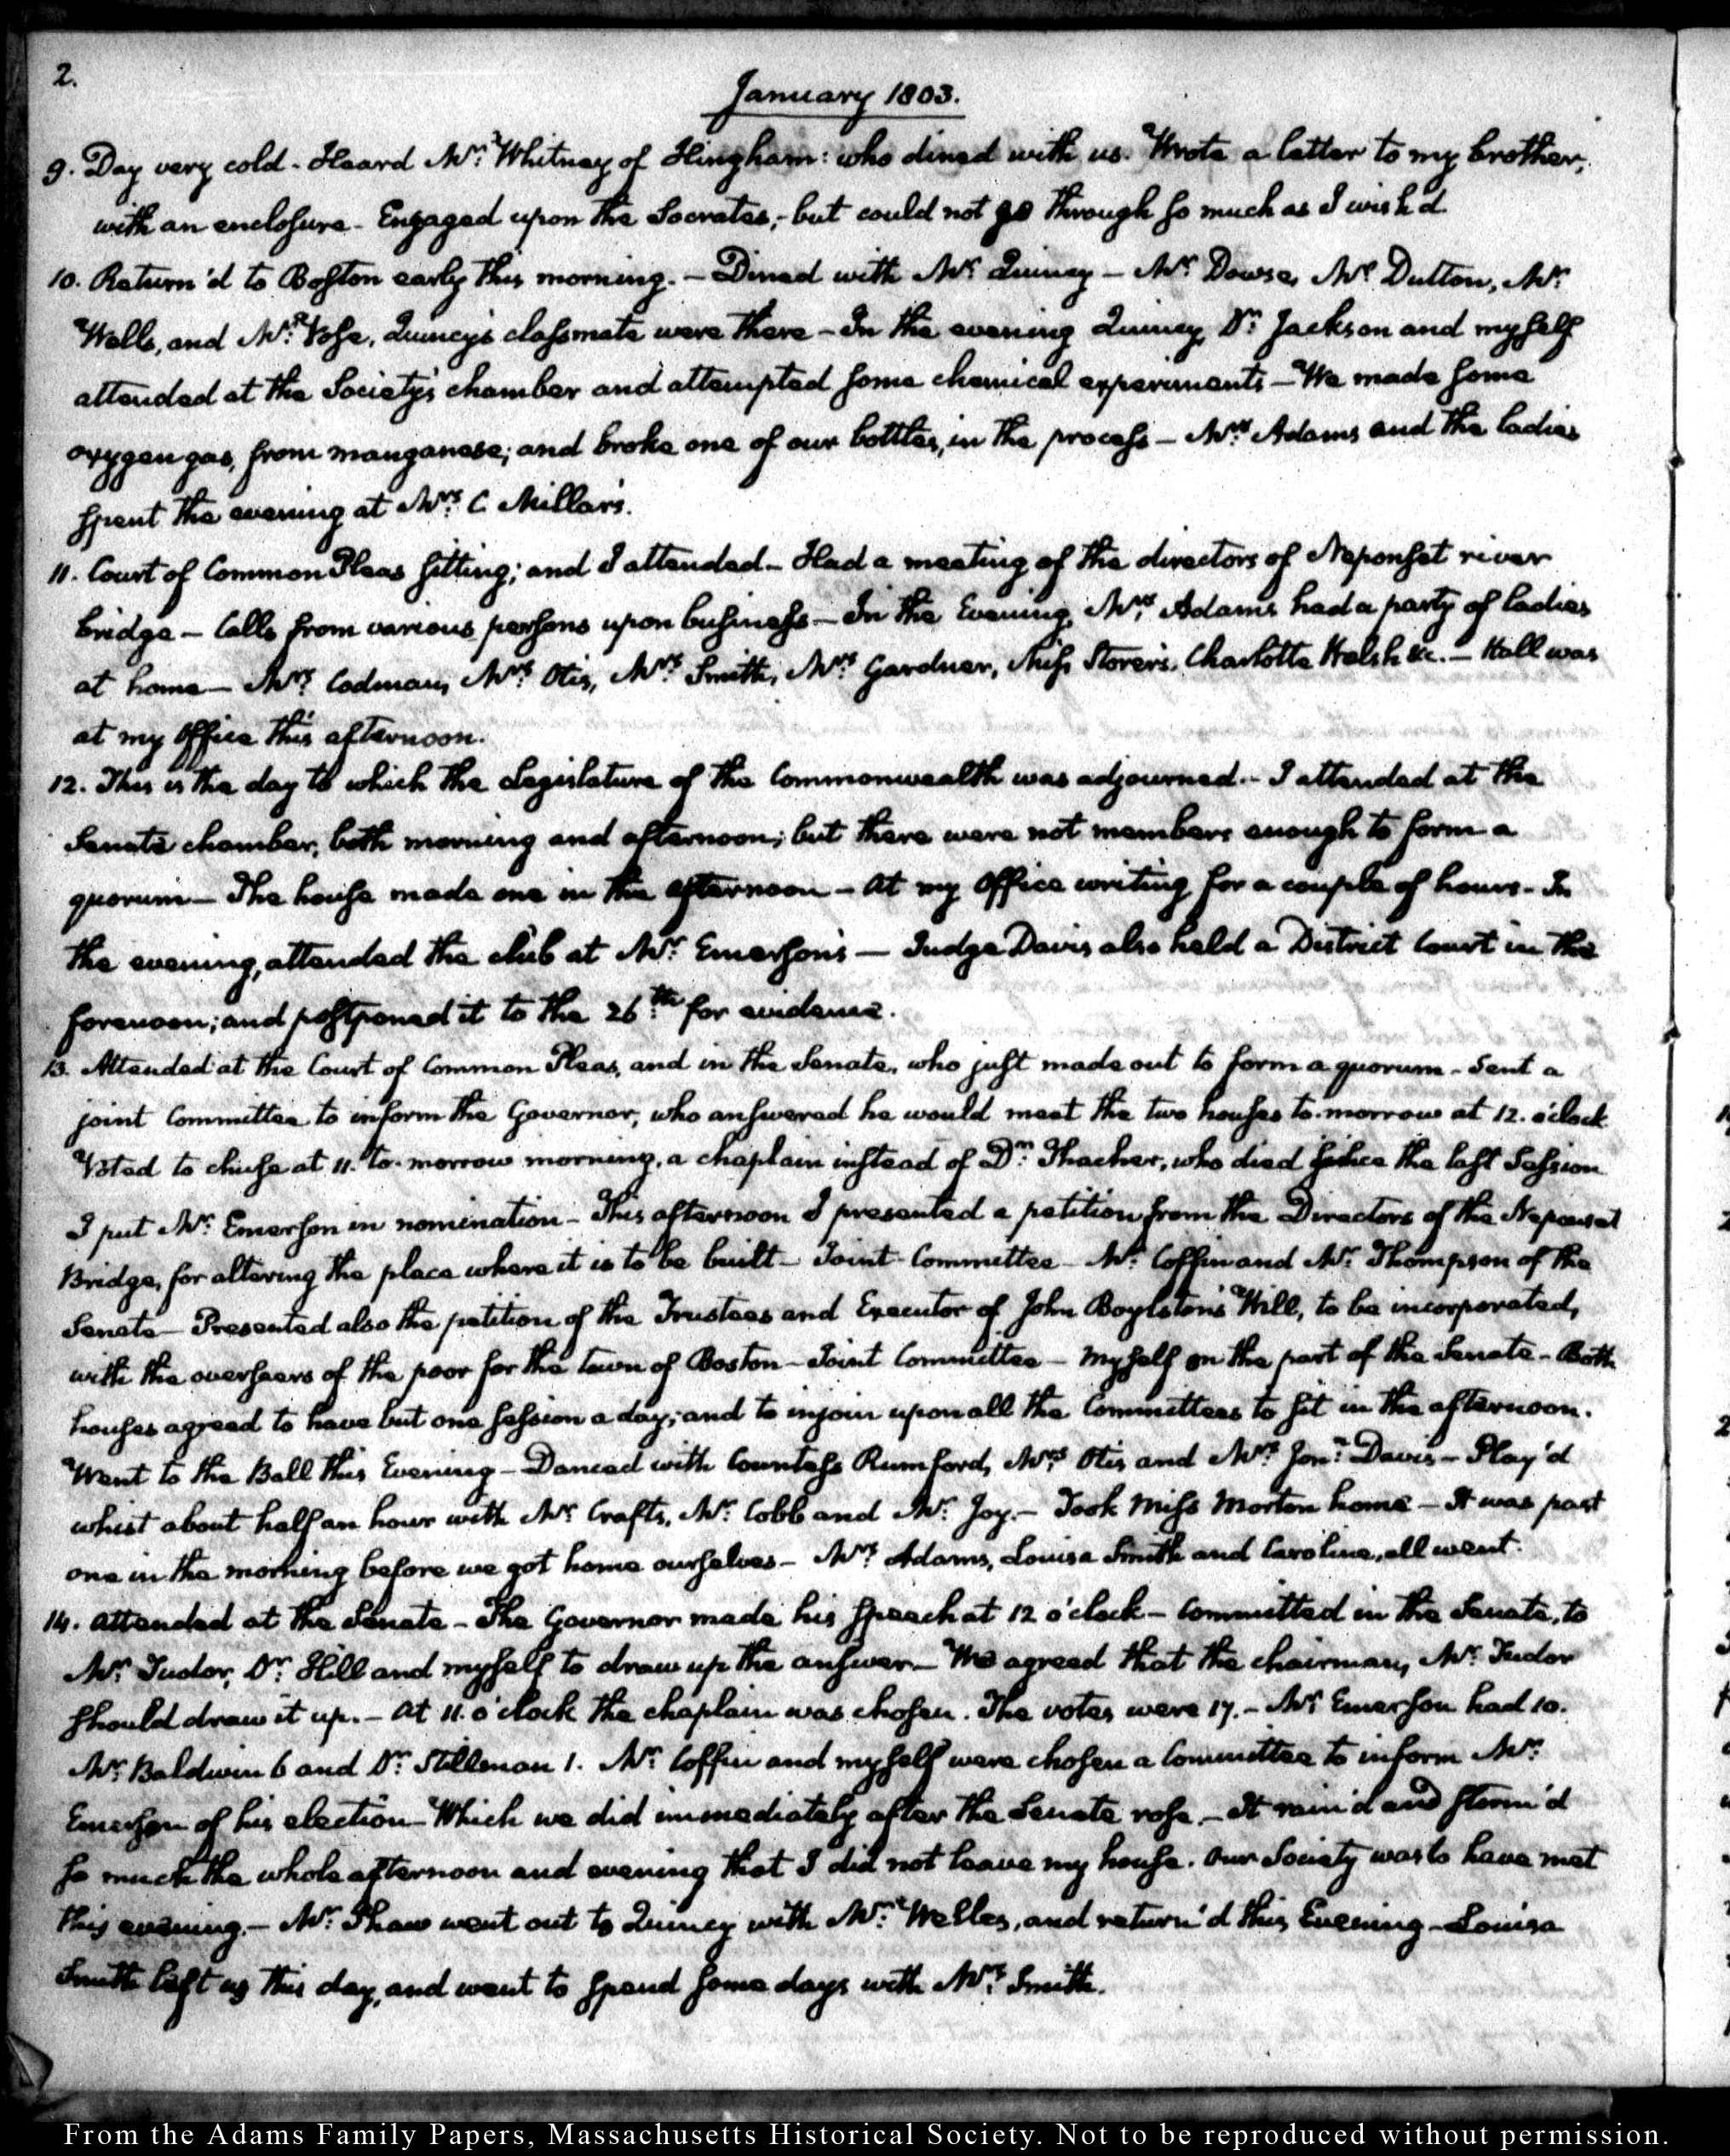 2.
January 1803.
9. Day very cold - Heard Mr. Whitney of Hingham: who dined with us. Wrote a letter to my brother,
with an enclosure - Engaged upon the Socrates, - but could not go through so much as I wish'd
10. Return'd to Boston early this morning. - Dined with Mr. Quincy - Mr. Dowse, Mr. Dutton, Mr.
Wells, and Mr. Vose, Quincy's classmate were there - In the evening Quincy, Dr. Jackson and myself
attended at the Society's chamber and attempted some chemical experiments - We made some
oxygen gas, from manganese; and broke one of our bottles, in the process - Mrs. Adams and the ladies
spent the evening at Mrs. C Millar's.
11. Court of Common Pleas sitting; and I attended - Had a meeting of the directors of Neponset river
bridge - Calls from various persons upon business - In the Evening, Mrs. Adams had a party of ladies
at home - Mrs. Codman, Mrs. Otis, Mrs. Smith, Mrs. Gardner, Miss Storers, Charlotte Welsh &c. - Hall was
at my Office this afternoon.
12. This is the day to which the Legislature of the Commonwealth was adjourned. - I attended at the
Senate chamber, both morning and afternoon; but there were not members enough to form a
quorum - The house made one in the afternoon - At my Office writing for a couple of hours - In
the evening, attended the club at Mr. Emerson's - Judge Davis also held a District Court in the
forenoon; and postponed it to the 26th. for evidence.
13. Attended at the Court of Common Pleas, and in the Senate, who just made out to form a quorum - Sent a
joint Committee to inform the Governor, who answered he would meet the two houses to-morrow at 12. o'clock
Voted to chuse at 11. to-morrow morning, a chaplain instead of Dr. Thacher, who died since the last Session
I put Mr. Emerson in nomination - This afternoon I presented a petition from the Directors of the Neponset
Bridge, for altering the place where it is to be built - Joint Committee - Mr. Coffin and Mr. Thompson of the
Senate - Presented also the petition of the Trustees and Executor of John Boylston's Will, to be incorporated,
with the overseers of the poor for the town of Boston - Joint Committee - Myself on the part of the Senate - Both
houses agreed to have but one session a day; and to injoin upon all the Committees to sit in the afternoon.
Went to the Ball this Evening - Danced with Countess Rumford, Mrs. Otis and Mrs. Jona. Davis - Play'd
whist about half an hour with Mr. Crafts, Mr. Cobb and Mr. Joy. - Took Miss Morton home - It was past
one in the morning before we got home ourselves - Mrs. Adams, Louisa Smith and Caroline, all went.
14. Attended at the Senate - The Governor made his speech at 12 o'clock - Committed in the Senate, to
Mr. Tudor, Dr. Hill and myself to draw up the answer - We agreed that the chairman, Mr. Tudor
should draw it up. - At 11. o'clock the chaplain was chosen. The votes were 17. - Mr. Emerson had 10.
Mr. Baldwin 6 and Dr. Stillman 1. Mr. Coffin and myself were chosen a Committee to inform Mr.
Emerson of his election - Which we did immediately after the Senate rose. - It rain'd and storm'd
so much the whole afternoon and evening that I did not leave my house. Our Society was to have met
this evening. - Mr. Shaw went out to Quincy with Mr. Welles, and return'd this Evening - Louisa
Smith left us this day, and went to spend some days with Mrs. Smith.
From the Adams Family Papers, Massachusetts Historical Society. Not to be reproduced without permission.